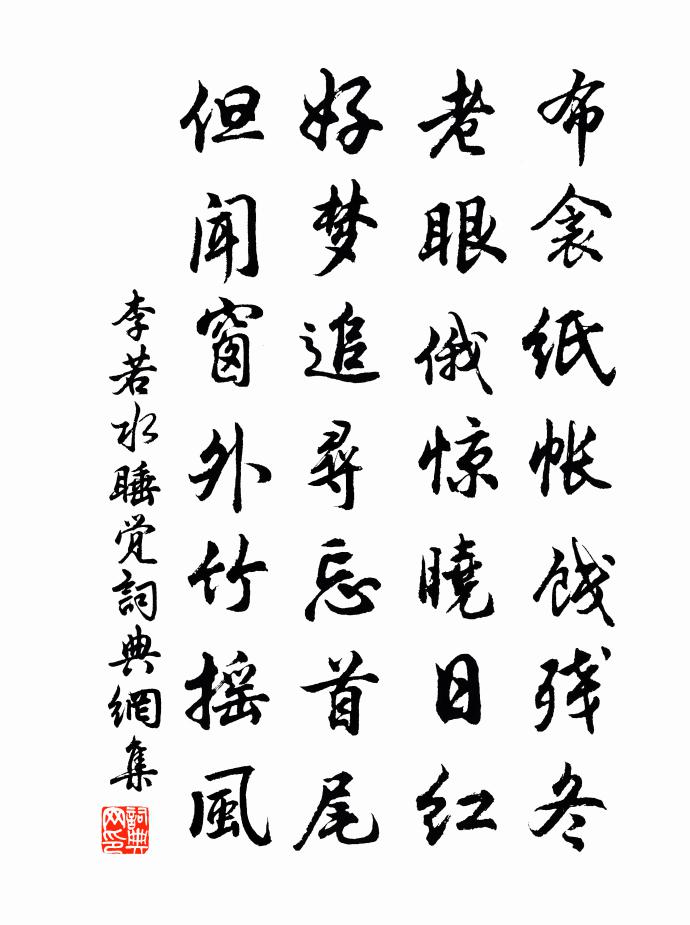 布衾纸帐饯残冬
老眼俄惊曉日红
好梦追尋忘首尾
但闻窗外竹摇風
李若水睡觉詞典網集
詞典网印